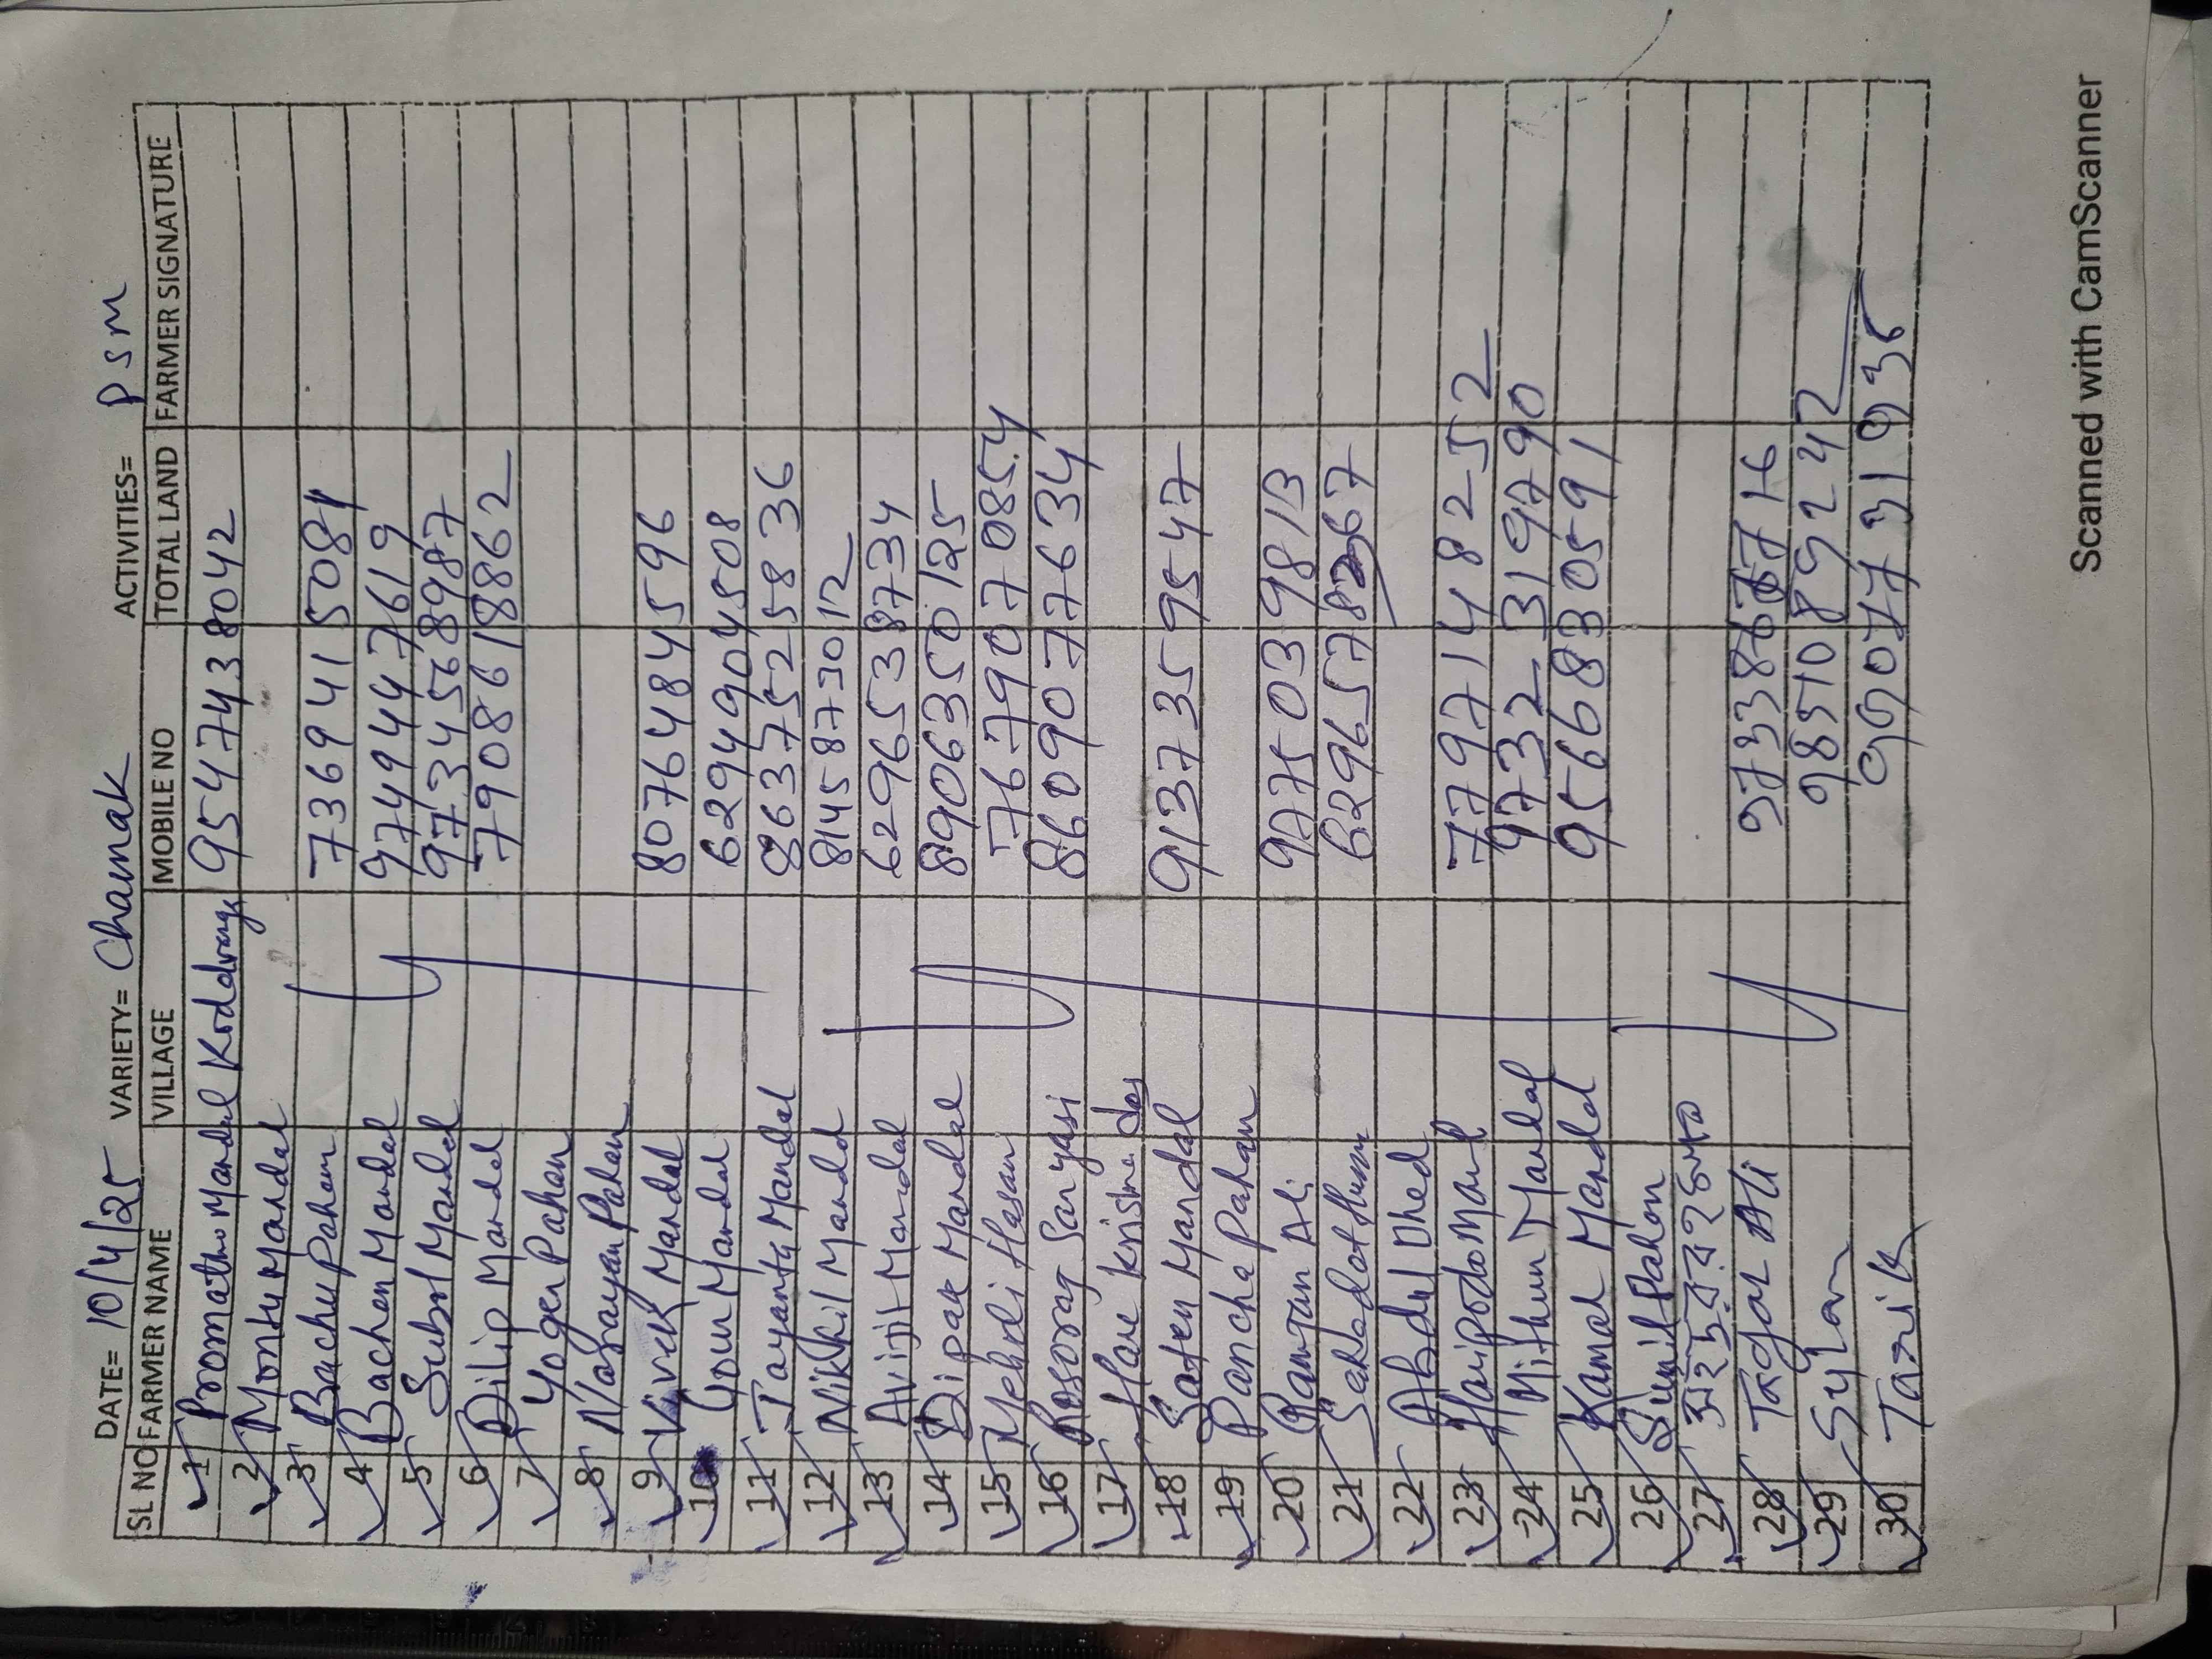 DATE= 10/4/25 VARIETY= Chamak ACTIVITIES= PSM
SL NO FARMER NAME VILLAGE MOBILE NO TOTAL LAND FARMER SIGNATURE
1 Promatho Mandal 9547438042
2 Montu Mandal
3 Bachu Pahan 7369415081
4 Bachan Mandal 9749447619
5 Subol Mandal 9734568987
6 Dilip Mandal 7908618862
7 Yogen Pahan
8 Narayan Pahan
9 Vivek Mandal 8076484596
10 Mandal 6294904508
11 Jayanta Mandal 8637525836
12 Nikhil Mandal 8145873012
13 Avijit Mandal 6296538734
14 Dipak Mandal 8906350125
15 Mehdi Hasan 7679070854
16 Sanyasi 8609077634
17 Hare Krishna das
18 Saten Mandal 9137359547
19 Pancha Pahan
20 Ramjan Ali 9775039813
21
22 Abdul Ohed
23 Haripodo Mandal 7797148252
24 Mithun Mandal 9732319790
25 Kamal Mandal 9566830591
26 Sunil Pahan
27
28 Tagor Ali
29 Sylon 9851089242
30 Tarik 9907731935
Scanned with CamScanner